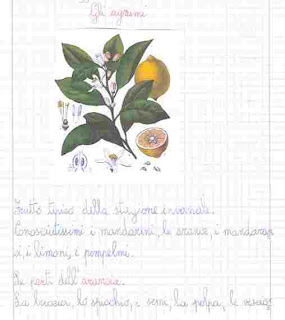 Gli agrumi
Frutto tipico della stagione invernale.
Conosciutissimi i mandarini, le arance, i mandaran
ci, i limoni, i pompelmi.
Le parti dell'arancia.
La buccia, lo spicchio, i semi, la polpa, le